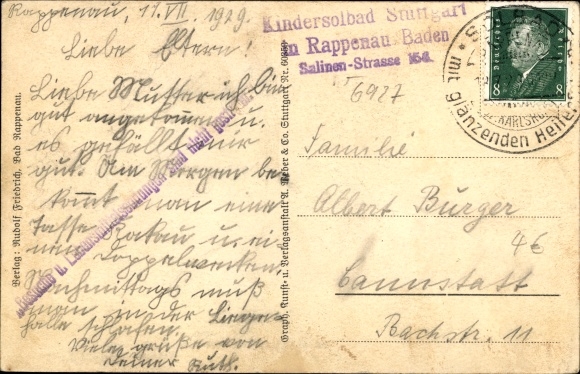 Rappenau, 17. VII. 1929.
Liebe Eltern!
Liebe Mutter ich bin
gut angekommen u.
es gefällt mir
gut. Am Morgen be-
kommt man eine
Tasse Kakau u. ei-
nen Doppelwecken.
Nachmittags muß
man in der Liege-
halle schlafen.
Viele grüße von
Deiner Ruth.
Verlag: Rudolf Friedrich, Bad Rappenau.
Graph. Kunst- u. Verlagsanstalt A. Weber & Co. Stuttgart Nr.
Kindersolbad Stuttgart
in Rappenau, Baden
Salinen-Strasse 156.
6927
Deutsches Reich
8 8
mit glänzenden Heil
KARLSRUHE
Familie
Albert Burger
46
Cannstatt
Bachstr. 11